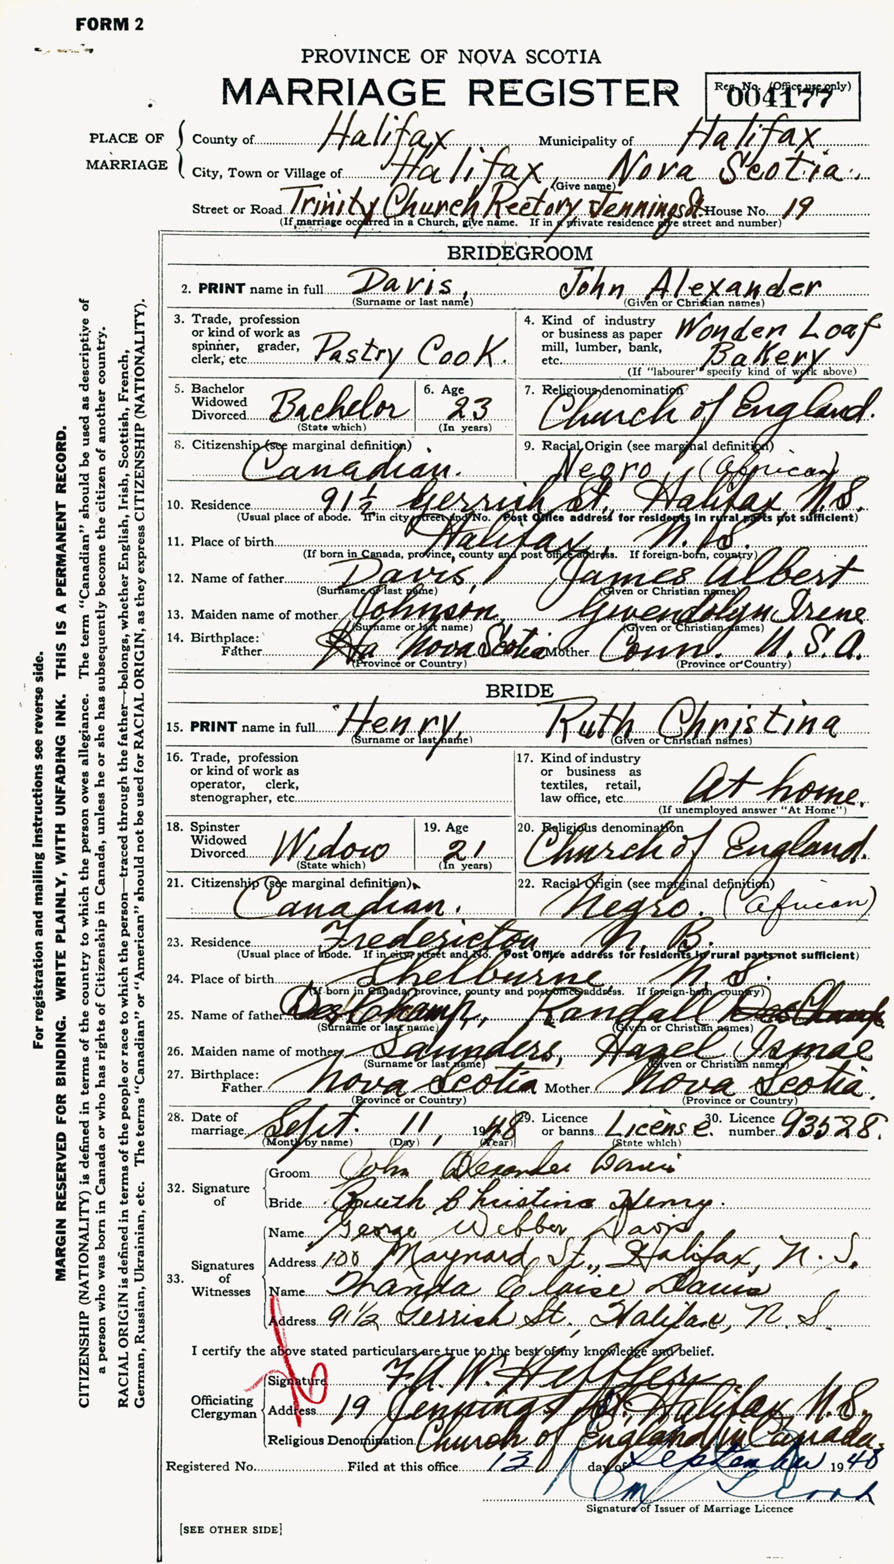 FORM 2
PROVINCE OF NOVA SCOTIA
MARRIAGE REGISTER
Reg. No. (Office use only)
004177
PLACE OF MARRIAGE
County of Halifax Municipality of Halifax.
City, Town or Village of Halifax, Nova Scotia.
(Give name)
Street or Road Trinity Church Rectory Jennings St. House No. 19
(If marriage occurred in a Church, give name. If in a private residence give street and number)
BRIDEGROOM
2. PRINT name in full Davis, John Alexander
(Surname or last name) (Given or Christian names)
3. Trade, profession or kind of work as spinner, grader, clerk, etc. Pastry Cook.
4. Kind of industry or business as paper mill, lumber, bank, etc. Wonder Loaf Bakery
(If "labourer" specify kind of work above)
5. Bachelor Widowed Divorced Bachelor
(State which)
6. Age 23
(In years)
7. Religious denomination
Church of England.
8. Citizenship (see marginal definition)
Canadian.
9. Racial Origin (see marginal definition)
Negro (African)
10. Residence 91½ Gerrish St., Halifax N.S.
(Usual place of abode. If in city street and No. Post Office address for residents in rural parts not sufficient)
11. Place of birth Halifax, N.S.
(If born in Canada, province, county and post office address. If foreign-born, country)
12. Name of father Davis, James Albert
(Surname or last name) (Given or Christian names)
13. Maiden name of mother Johnson, Gwendolyn Irene
(Surname or last name) (Given or Christian names)
14. Birthplace:
Father Nova Scotia Mother Conn. U.S.A.
(Province or Country) (Province or Country)
BRIDE
15. PRINT name in full Henry, Ruth Christina
(Surname or last name) (Given or Christian names)
16. Trade, profession or kind of work as operator, clerk, stenographer, etc.
17. Kind of industry or business as textiles, retail, law office, etc. At home.
(If unemployed answer "At Home")
18. Spinster Widowed Divorced Widow
(State which)
19. Age 21
(In years)
20. Religious denomination
Church of England.
21. Citizenship (see marginal definition)
Canadian.
22. Racial Origin (see marginal definition)
Negro. (African)
23. Residence Fredericton N.B.
(Usual place of abode. If in city street and No. Post Office address for residents in rural parts not sufficient)
24. Place of birth Shelburne, N.S.
(If born in Canada, province, county and post office address. If foreign-born, country)
25. Name of father DesChamp, Randall
(Surname or last name) (Given or Christian names)
26. Maiden name of mother Saunders, Hazel Ismae
(Surname or last name) (Given or Christian names)
27. Birthplace:
Father Nova Scotia Mother Nova Scotia.
(Province or Country) (Province or Country)
28. Date of marriage Sept. 11, 1948
(Month by name) (Day) (Year)
29. Licence or banns License.
(State which)
30. Licence number 93528.
32. Signature of
Groom John Alexander Davis
Bride Ruth Christina Henry.
33. Signatures of Witnesses
Name George Webber Davis
Address 100 Maynard St., Halifax, N.S.
Name Thanda Eloise Davis
Address 91½ Gerrish St., Halifax, N.S.
I certify the above stated particulars are true to the best of my knowledge and belief.
Officiating Clergyman
Signature F.A.W.
Address 19 Jennings St. Halifax N.S.
Religious Denomination Church of England in Canada.
Registered No. Filed at this office 13 day of September 1948
Signature of Issuer of Marriage Licence
[SEE OTHER SIDE]
For registration and mailing instructions see reverse side.
MARGIN RESERVED FOR BINDING. WRITE PLAINLY, WITH UNFADING INK. THIS IS A PERMANENT RECORD.
CITIZENSHIP (NATIONALITY) is defined in terms of the country to which the person owes allegiance. The term "Canadian" should be used as descriptive of
a person who was born in Canada or who has rights of Citizenship in Canada, unless he or she has subsequently become the citizen of another country.
RACIAL ORIGIN is defined in terms of the people or race to which the person—traced through the father—belongs, whether English, Irish, Scottish, French,
German, Russian, Ukrainian, etc. The terms "Canadian" or "American" should not be used for RACIAL ORIGIN, as they express CITIZENSHIP (NATIONALITY).